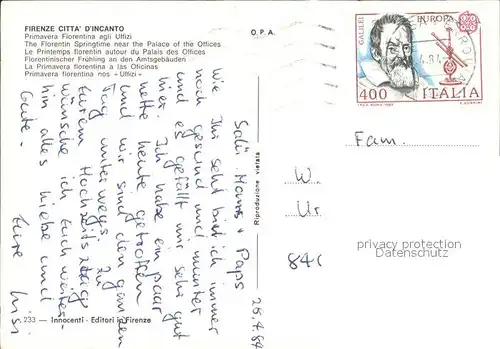 FIRENZE CITTA' D'INCANTO
Primavera Fiorentina agli Uffizi
The Florentin Springtime near the Palace of the Offices
Le Printemps florentin autour du Palais des Offices
Florentinischer Frühling an den Amtsgebäuden
La Primavera florentina a las Oficinas
Primavera florentina nos «Uffizi»
O. P. A.
GALILEI
EUROPA
400 ITALIA
Riproduzione vietata
Salü Mams + Paps
Wie Ihr seht bin ich immer
noch gesund und munter
und es gefällt mir sehr gut
hier. Ich habe ein paar
nette Leute getroffen
und wir sind den ganzen
Tag unterwegs. Zu
Eurem Hochzeitstag
wünsche ich Euch weiter-
hin alles liebe und
Gute.
Eure
26.4.84
Fam.
W.
Ur
841
privacy protection
Datenschutz
233 — Innocenti - Editori in Firenze